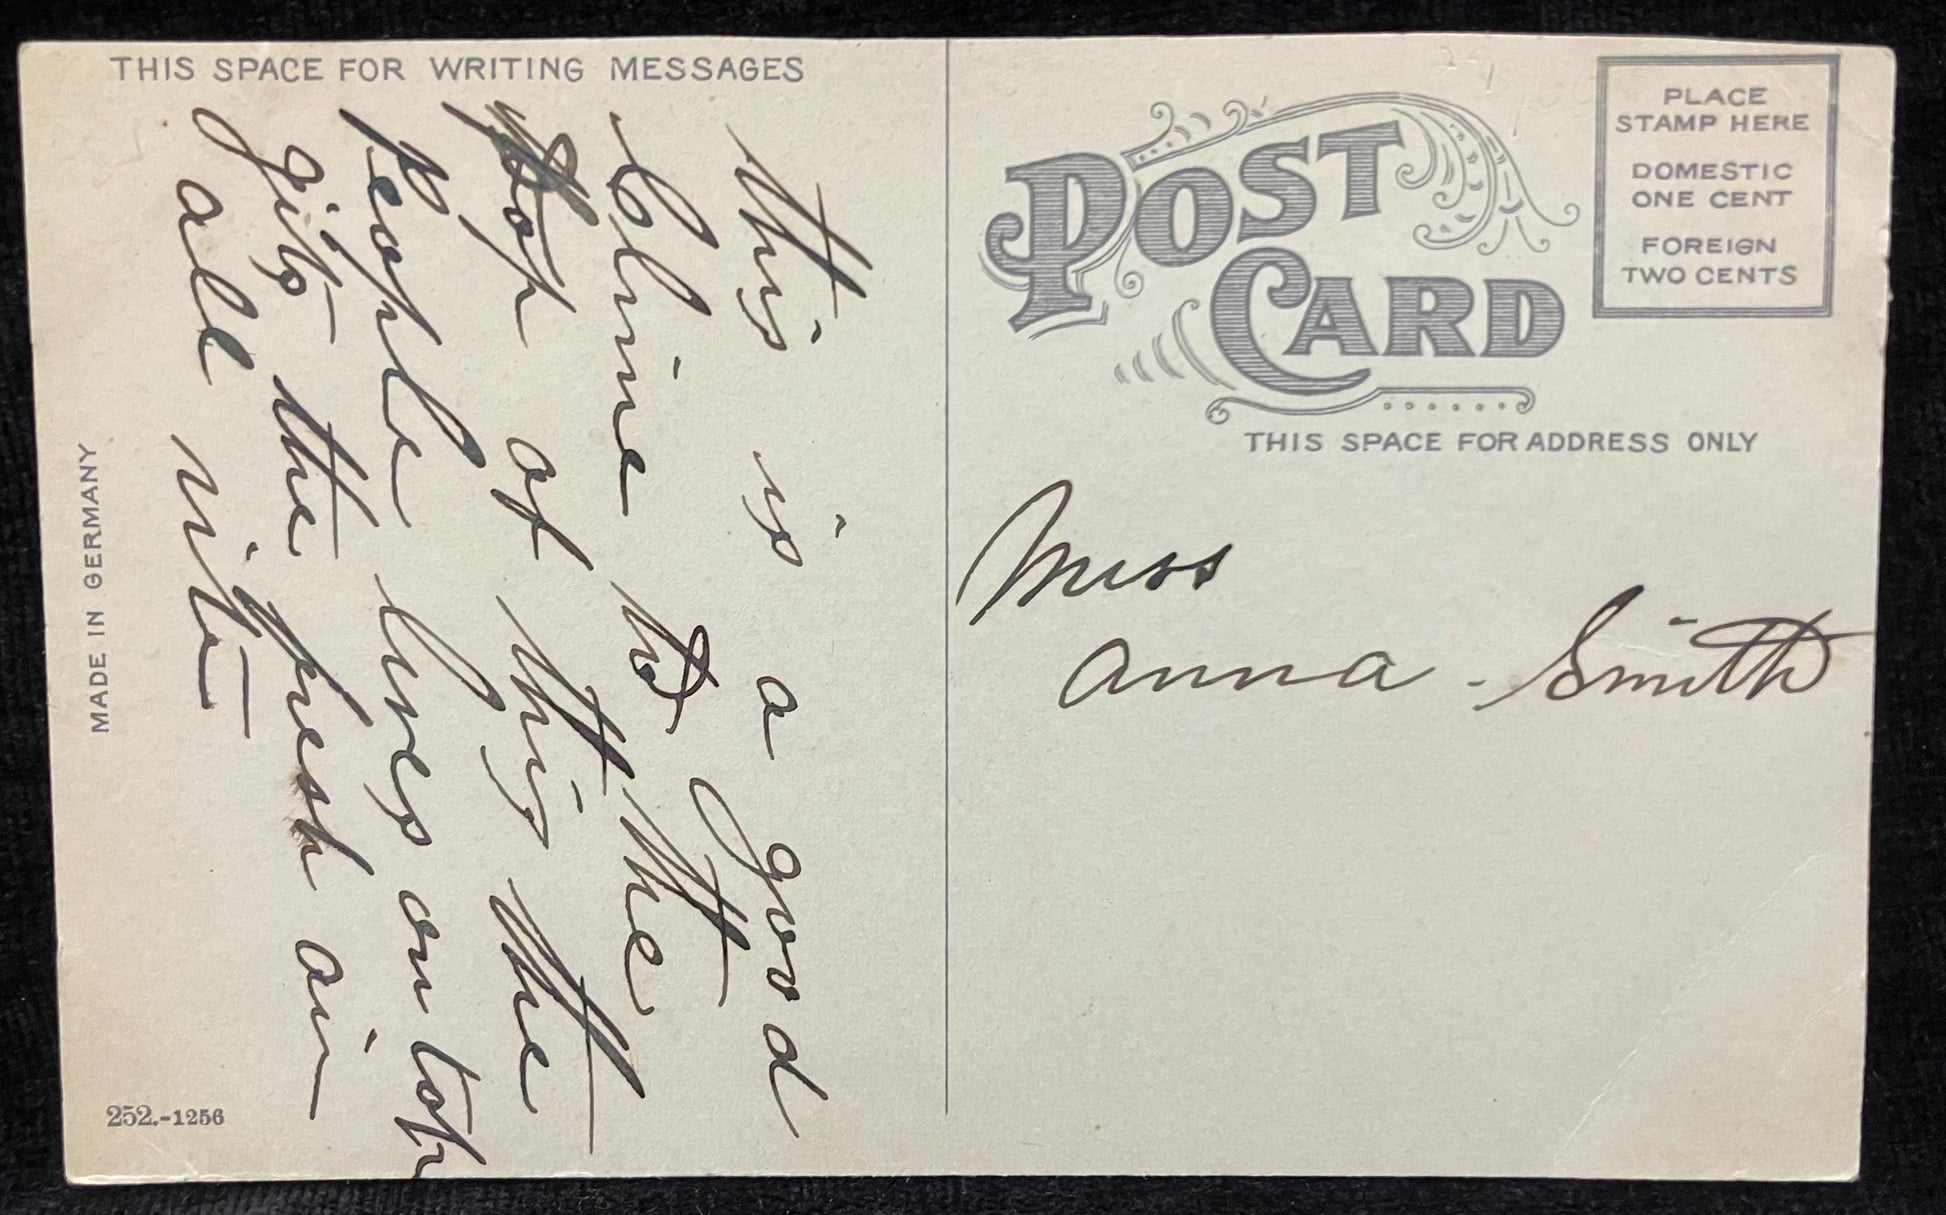 THIS SPACE FOR WRITING MESSAGES
this is a good
Cline to the
top of this the
People lives on top
gits the fresh air
all nite
MADE IN GERMANY
252.-1256
POST
CARD
THIS SPACE FOR ADDRESS ONLY
PLACE
STAMP HERE
DOMESTIC
ONE CENT
FOREIGN
TWO CENTS
Miss
Anna - Smith